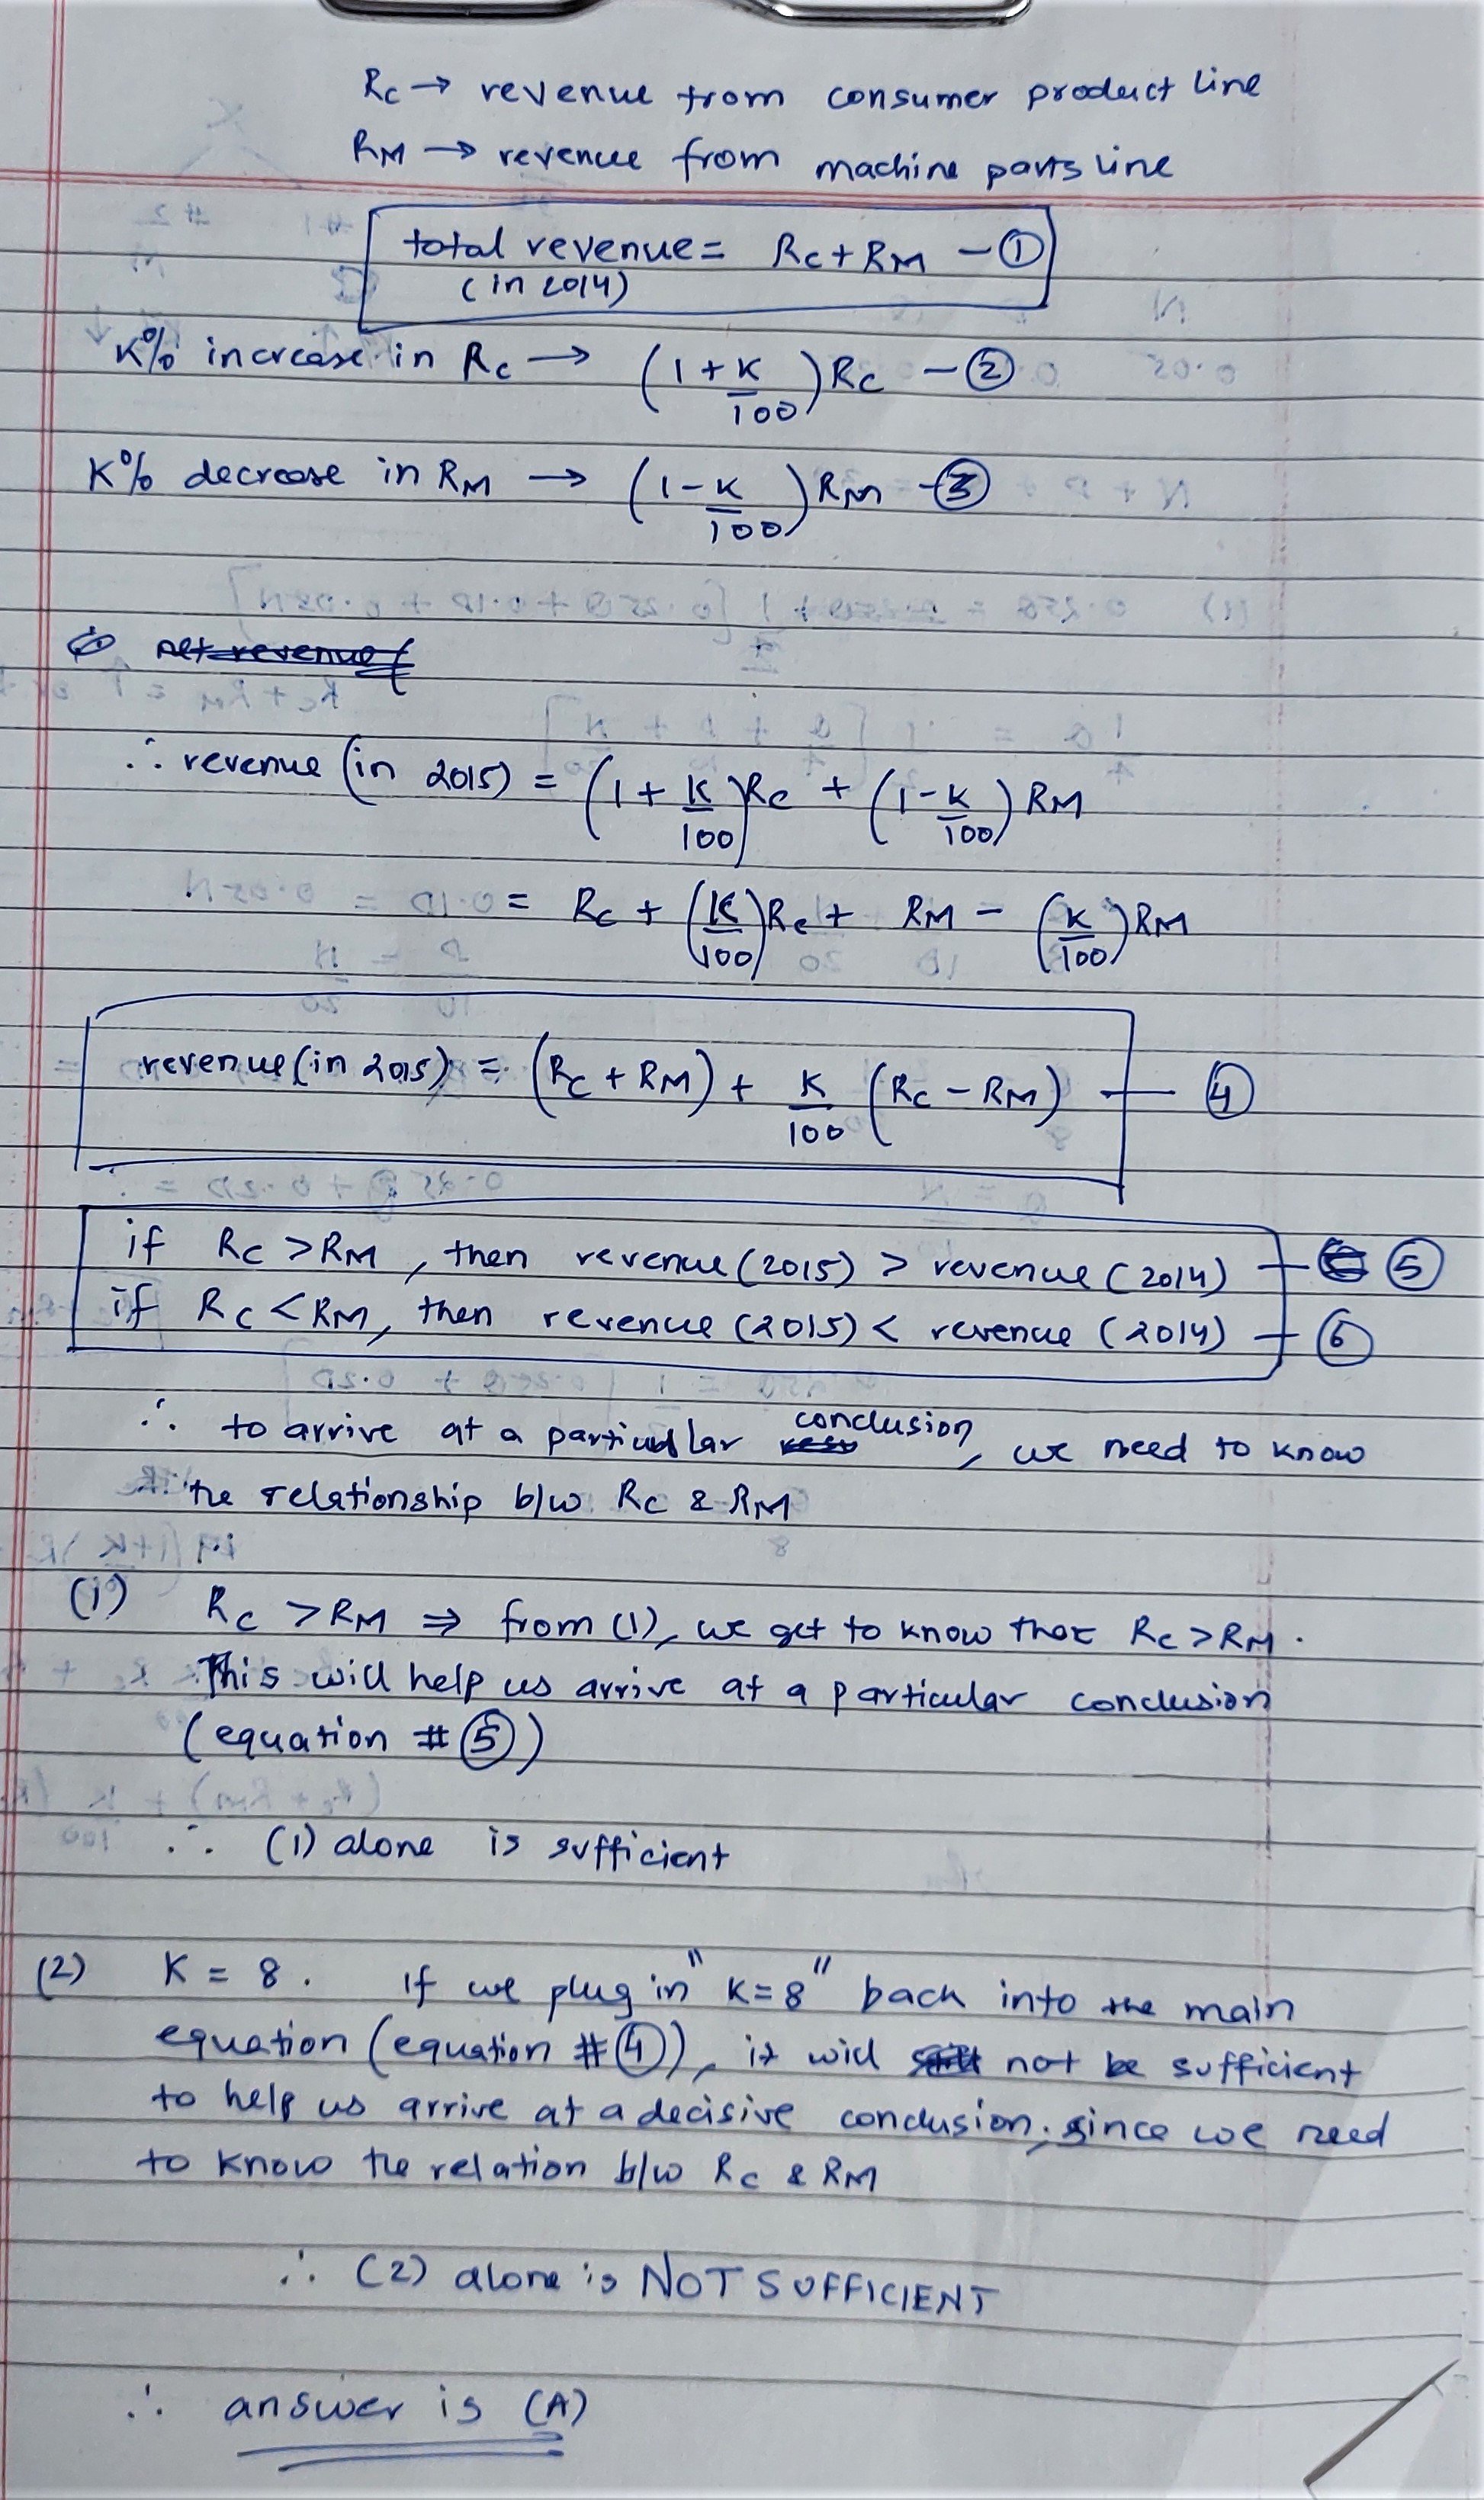 Rc → revenue from consumer product line
RM → revenue from machine parts line
total revenue = Rc + RM - ①
(in 2014)
K% increase in Rc → (1 + K/100) Rc - ②
K% decrease in RM → (1 - K/100) RM - ③
net revenue
∴ revenue (in 2015) = (1 + K/100) Rc + (1 - K/100) RM
= Rc + (K/100) Rc + RM - (K/100) RM
revenue (in 2015) = (Rc + RM) + K/100 (Rc - RM) — ④
if Rc > RM, then revenue (2015) > revenue (2014) — ⑤
if Rc < RM, then revenue (2015) < revenue (2014) — ⑥
∴ to arrive at a particular conclusion, we need to know
the relationship b/w Rc & RM
(1) Rc > RM ⇒ from (1), we get to know that Rc > RM.
This will help us arrive at a particular conclusion
(equation # ⑤)
∴ (1) alone is sufficient
(2) K = 8. If we plug in "K=8" back into the main
equation (equation # ④), it will not be sufficient
to help us arrive at a decisive conclusion, since we need
to know the relation b/w Rc & RM
∴ (2) alone is NOT SUFFICIENT
∴ answer is (A)